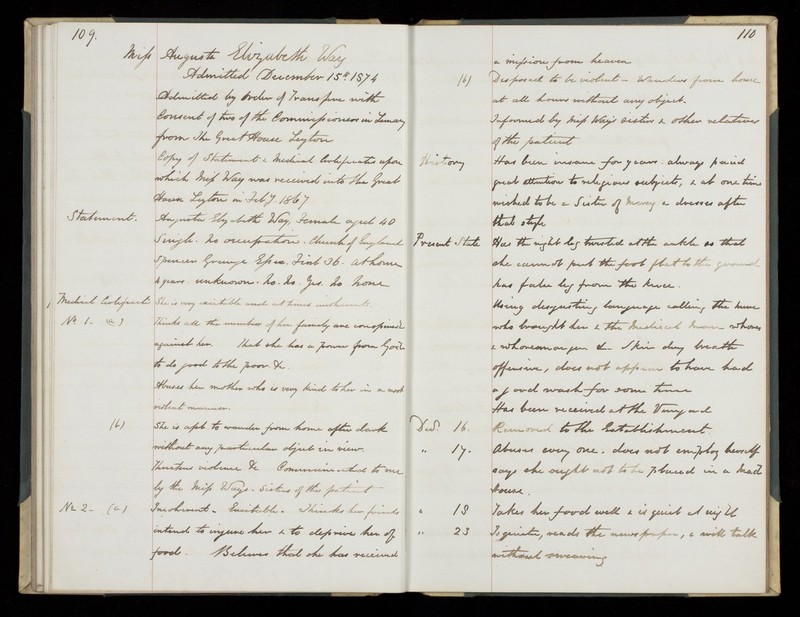 109.
Miss Augusta Elizabeth Way
Admitted December 15th 1874
Admitted by Order of Transfer with
Consent of two of the Commissioners in Lunacy
from the Great House Leyton
Copy of Statement & Medical Certificates upon
which Miss Way was received into the Great
House Leyton in Feby. 1867
Statement. Augusta Elizabeth Way, Female aged 40
Single. No occupation. Church of England
Spencer Grange Essex. First 36. At home
4 years. unknown. No. No. Yes. No None
Medical Certificate She is very excitable and at times incoherent.
No 1- (a) Thinks all the members of her family are conspired
against her. That she has a power from God
to do good to the poor &c.
Abuses her mother who is very kind to her in a most
violent manner.
(b) She is apt to wander from home after dark
without any particular object in view.
Threatens violence &c Communicated to me
by the Miss Ways. Sisters of this patient
No 2- (a) Incoherent - Excitable. Thinks her friends
intend to injure her & to deprive her of
food. Believes that she has received
110
a mission from heaven
(b) Disposed to be violent - Wanders from home
at all hours without any object.
Informed by Miss Way sister & other relatives
of the patient
History Has been insane for years. always paid
great attention to religious subjects, & at one time
wished to be a Sister of Mercy & dresses after
that style
Present State Has the right leg twisted at the ankle so that
she cannot put the foot flat to the ground
has false leg from the knee.
Using disgusting language calling the nurse
who brought her & the Medical man whores
& whoremonger &c Skin dry breath
offensive, does not appear to have had
a good wash for some time
Has been received at the Vineyard
Decr. 16. Removed to the Establishment
" 17. Abuses every one. does not employ herself
says she ought not to be placed in a mad
house.
" 18 Takes her food well & is quiet at night
" 23 Is quieter, reads the newspaper, & will talk
without swearing